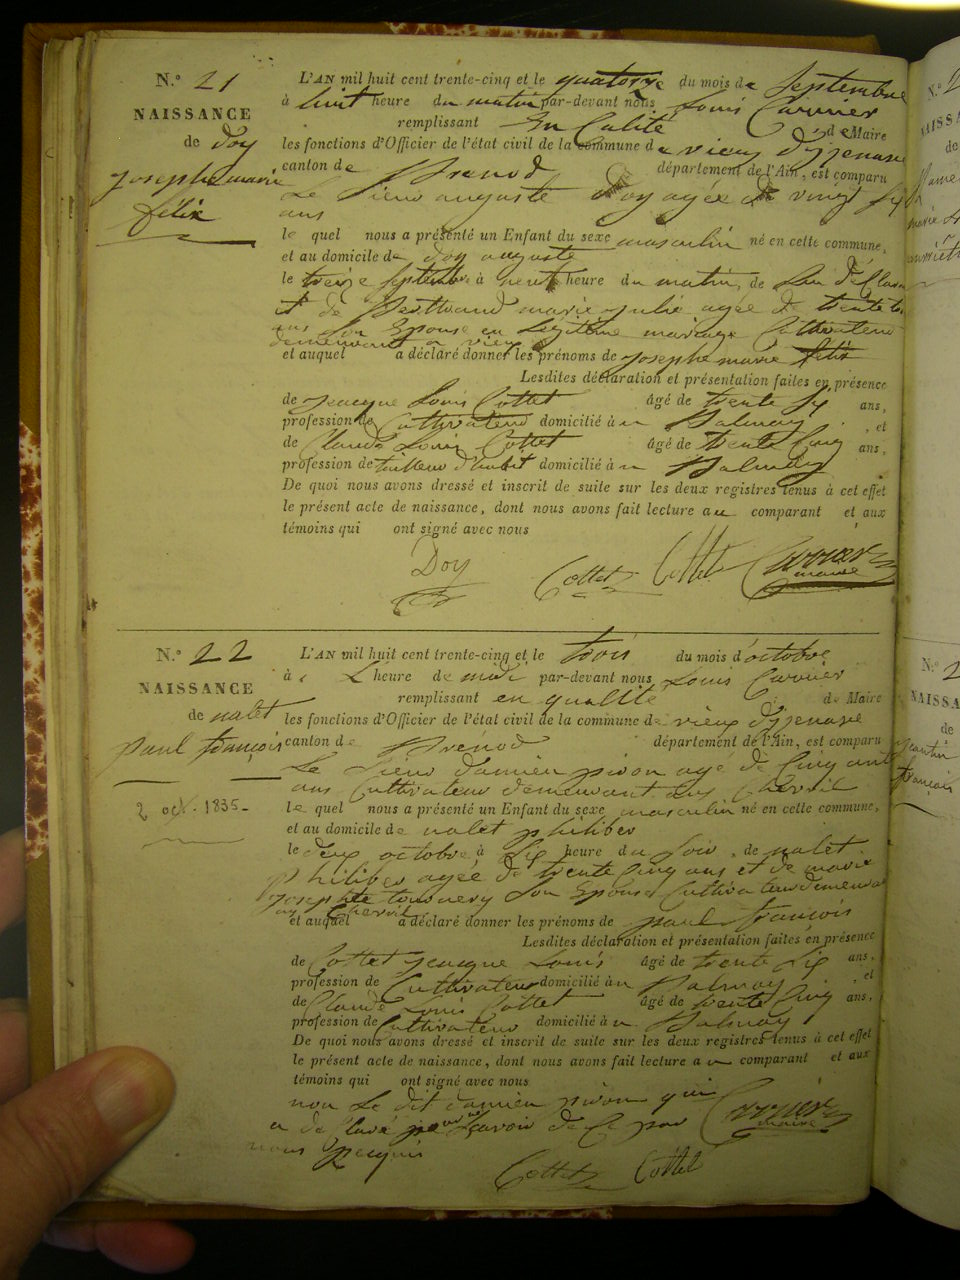 N.° 21
NAISSANCE
de Doy
Josephe marie
félix
L'AN mil huit cent trente-cinq et le quatorze du mois de Septembre
à huit heure du matin par-devant nous Louis Carrier
remplissant En Calité d e Maire
les fonctions d'Officier de l'état civil de la commune de vieux d'Izenave
canton de Brenod département de l'Ain, est comparu
Le Sieur auguste Doy agée de vingt Six
ans
le quel nous a présenté un Enfant du sexe masculin né en cette commune,
et au domicile de doy auguste
le treize Septembre à heure du matin, de
et de marie julie agée de trente
ans Son Epouse en Légitime mariage Cultivateur
demeurant a vieux
et auquel a déclaré donner les prénoms de Josephe marie félix
Lesdites déclaration et présentation faites en présence
de Jeacque Louis Cottet âgé de trente Six ans,
profession de Cultivateur domicilié à Balmay, et
de Claude Louis Cottet âgé de trente Cinq ans,
profession de tailleur d'habit domicilié à Balmay
De quoi nous avons dressé et inscrit de suite sur les deux registres tenus à cet effet
le présent acte de naissance, dont nous avons fait lecture au comparant et aux
témoins qui ont signé avec nous
Doy Cottet Cottet Carrier
maire
N.° 22
NAISSANCE
de nalet
Paul françois
2 oct. 1835-
L'AN mil huit cent trente-cinq et le trois du mois d'octobre
à L'heure de midi par-devant nous Louis Carrier
remplissant en qualité de Maire
les fonctions d'Officier de l'état civil de la commune de vieux d'Izenave
canton de Brénod département de l'Ain, est comparu
Le Sieur damien pivon agé de Cinquante
ans Cultivateur demeurant aux Chevril
le quel nous a présenté un Enfant du sexe masculin né en cette commune,
et au domicile de nalet philiber
le deux octobre à Six heure du Soir, de nalet
Philiber agée de trente Cinq ans et de marie
Josephte Son Epouse Cultivateur demeurant
au Chevril
et auquel a déclaré donner les prénoms de paul françois
Lesdites déclaration et présentation faites en présence
de Cottet Jeacque Louis âgé de trente Six ans,
profession de Cultivateur domicilié à Balmay, et
de Claude Louis Cottet âgé de trente Cinq ans,
profession de Cultivateur domicilié à Balmay
De quoi nous avons dressé et inscrit de suite sur les deux registres tenus à cet effet
le présent acte de naissance, dont nous avons fait lecture au comparant et aux
témoins qui ont signé avec nous
non Le dit damien pivon qui
a de Claré Savoir de Ce par
nous Requis
Carrier
maire
Cottet Cottet